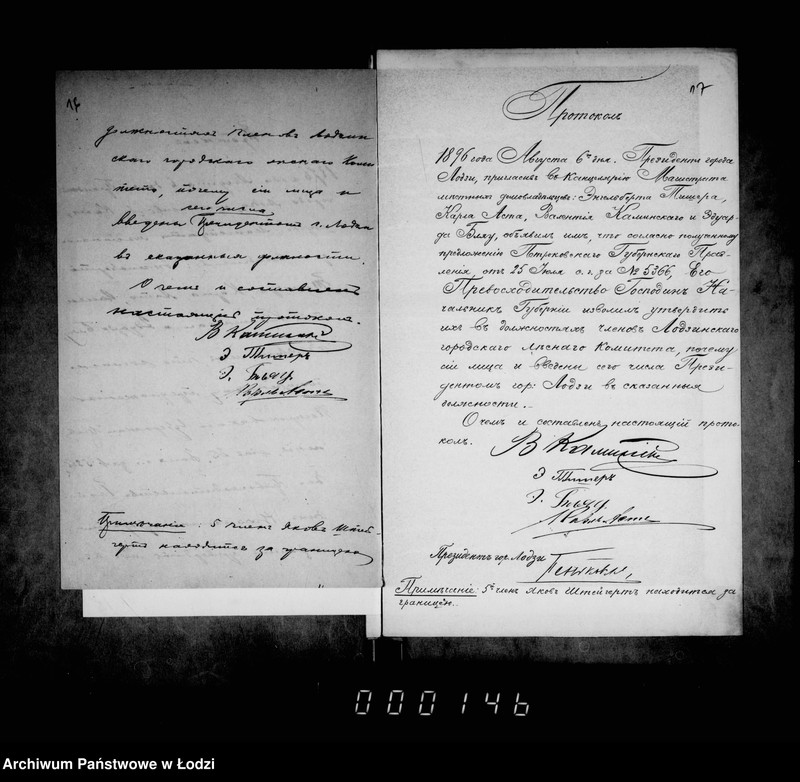 16
должностяхъ членовъ Лодзин
скаго городскаго лѣснаго Коми
тета, почему сіи лица и
сего числа
введены Президентомъ г. Лодзи
въ сказанныя должности.
О чемъ и составленъ
настоящій протоколъ.
В Каминскій
Э Тишеръ
Э. Бляу
Карлъ Астъ
Примѣчаніе: 5 членъ Яковъ Штей
гертъ находится за границею
17
Протоколъ
1896 года Августа 6го дня. Президентъ города
Лодзи, пригласивъ въ Канцелярію Магистрата
мѣстныхъ домовладѣльцевъ: Энгельберта Тишера,
Карла Аста, Валентія Каминскаго и Эдуар-
да Бляу, объявилъ имъ, что согласно полученному
предложенію Петроковскаго Губернскаго Прав-
ленія, отъ 25 Іюля с. г. за № 5366, Его
Превосходительство Господинъ На-
чальникъ Губерніи изволилъ утвердить
ихъ въ должностяхъ членовъ Лодзинскаго
городскаго лѣснаго Комитета, почему
сіи лица и введены сего числа Прези-
дентомъ гор: Лодзи въ сказанныя
должности.
О чемъ и составленъ настоящій прото-
колъ.
В Каминскій
Э Тишеръ
Э. Бляу
Карлъ Астъ
Президентъ гор. Лодзи Пеньковскій
Примѣчаніе: 5й членъ Яковъ Штейгертъ находится за
границею.
000146
Archiwum Państwowe w Łodzi